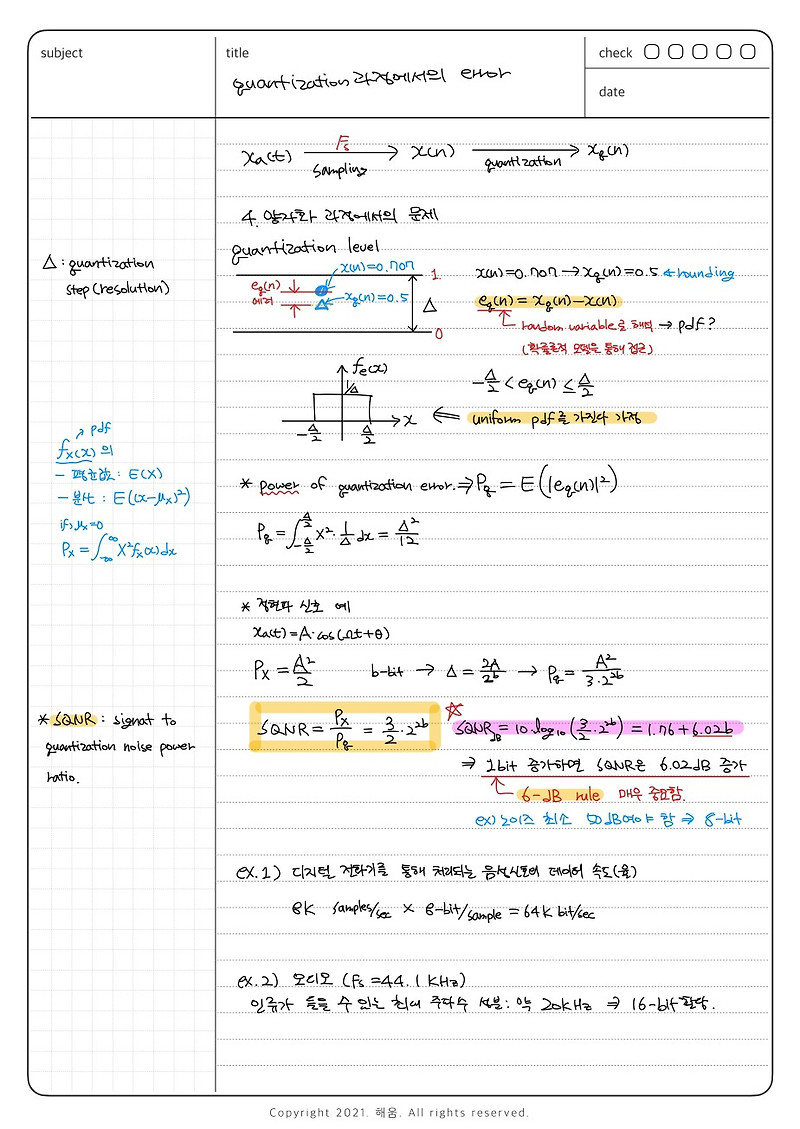 subject
title
check
quantization 과정에서의 error
date
xa(t) →(Fs, sampling) x(n) →(quantization) xq(n)
4. 양자화 과정에서의 문제
quantization level
△ : quantization
step(resolution)
x(n)=0.707
1
eq(n)
에러
xq(n)=0.5
△
0
x(n)=0.707 → xq(n)=0.5 ← rounding
eq(n) = xq(n)-x(n)
random variable로 해석 → pdf?
(확률론적 모델을 통해 접근)
fe(x)
1/△
x
-△/2
△/2
-△/2 < eq(n) ≤ △/2
⇐ uniform pdf를 가진다 가정
pdf
fx(x) 의
- 평균값 : E(X)
- 분산 : E((x-μx)²)
if) μx=0
Px = ∫_{-∞}^{∞} x² fx(x) dx
* power of quantization error. ⇒ Pq = E(|eq(n)|²)
Pq = ∫_{-△/2}^{△/2} x² · 1/△ dx = △²/12
* 정현파 신호 예
xa(t) = A·cos(Ωt+θ)
Px = A²/2 b-bit → △ = 2A/2^b → Pq = A²/(3·2^{2b})
* SQNR : signal to
quantization noise power
ratio.
SQNR = Px/Pq = 3/2 · 2^{2b}
☆ SQNR_dB = 10 log₁₀(3/2 · 2^{2b}) = 1.76 + 6.02b
⇒ 1bit 증가하면 SQNR은 6.02dB 증가
6-dB rule 매우 중요함.
ex) 노이즈 최소 50dB여야 함 ⇒ 8-bit
ex.1) 디지털 전화기를 통해 처리되는 음성신호의 데이터 속도(율)
8K samples/sec × 8-bit/sample = 64K bit/sec
ex.2) 오디오 (Fs = 44.1 KHz)
인류가 들을 수 있는 최대 주파수 성분 : 약 20kHz ⇒ 16-bit 할당.
Copyright 2021. 해움. All rights reserved.